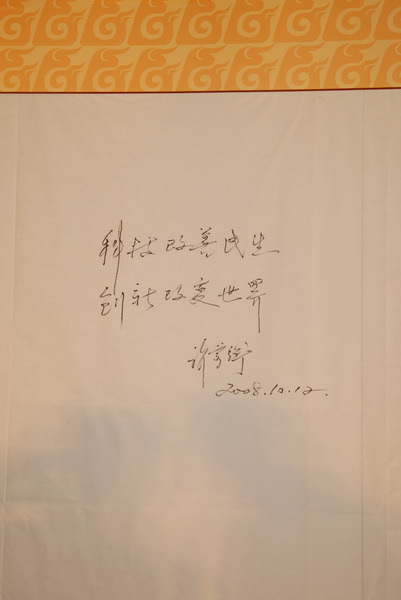 科技改善民生
创新改变世界
许宗衡
2008.10.12.